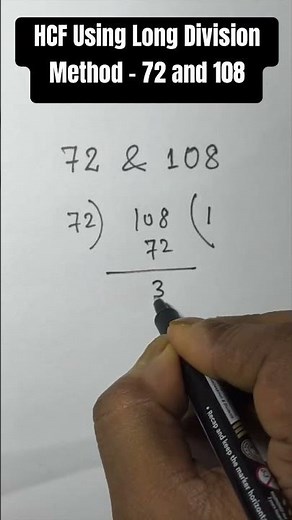 HCF Using Long Division
Method - 72 and 108
72 & 108
72) 108 (1
72
3
• Recap and keep the marker horizont